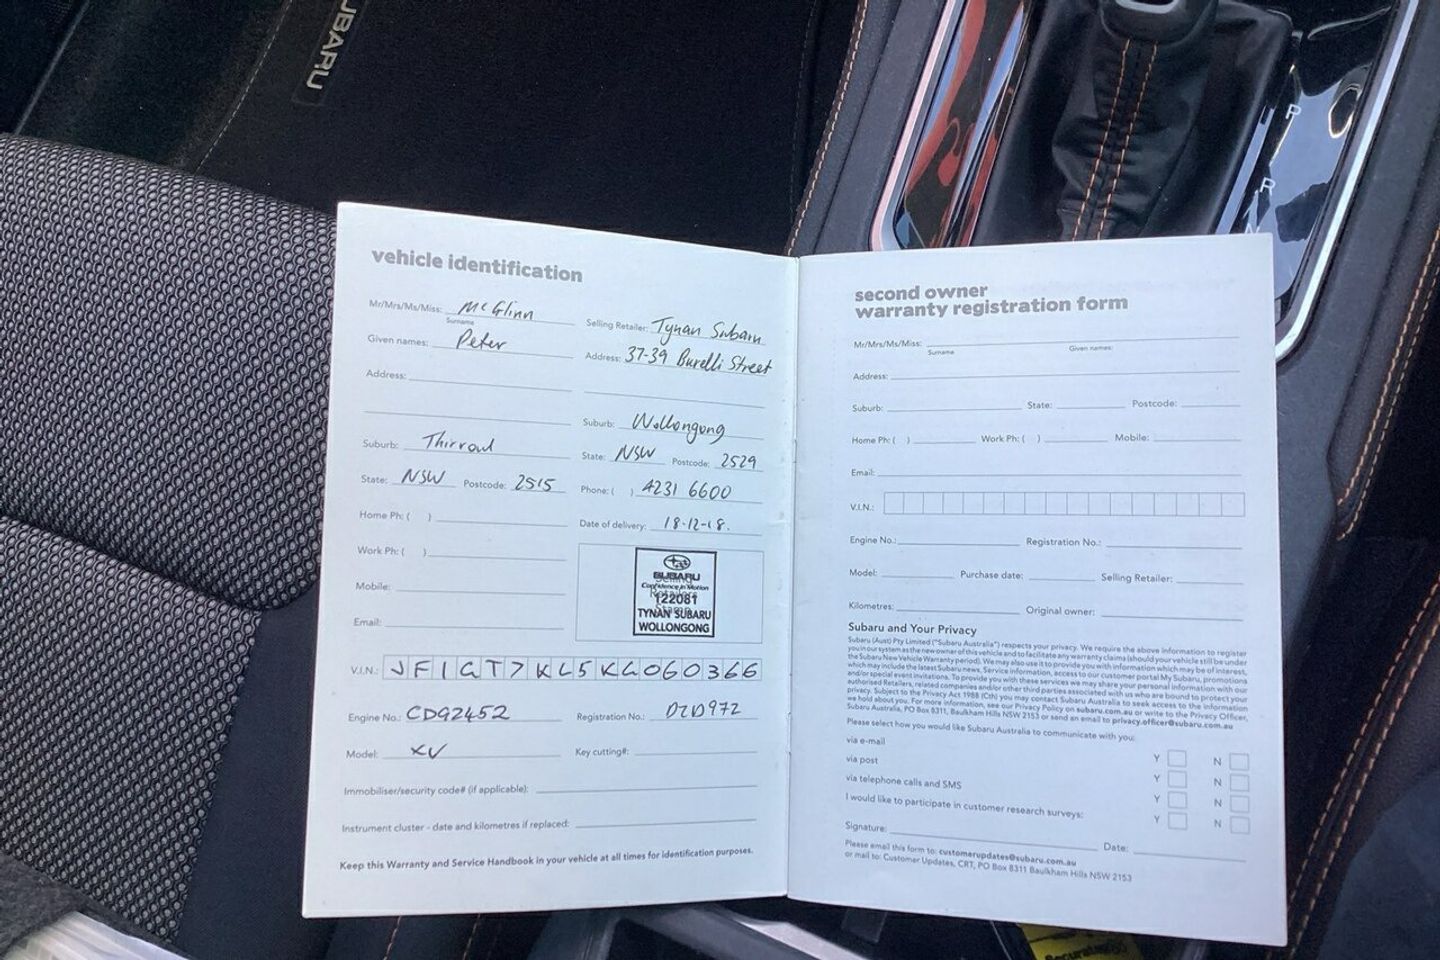 SUBARU
P
R
N
vehicle identification
Mr/Mrs/Ms/Miss: McGlinn
Surname
Given names: Peter
Address:
Suburb: Thirroul
State: NSW Postcode: 2515
Home Ph: ( )
Work Ph: ( )
Mobile:
Email:
Selling Retailer: Tynan Subaru
Address: 37-39 Burelli Street
Suburb: Wollongong
State: NSW Postcode: 2529
Phone: ( ) 4231 6600
Date of delivery: 18-12-18.
SUBARU
Confidence in Motion
122081
TYNAN SUBARU
WOLLONGONG
V.I.N.: JF1GT7KL5KG060366
Engine No.: CD92452 Registration No.: DZD972
Model: XV Key cutting#:
Immobiliser/security code# (if applicable):
Instrument cluster - date and kilometres if replaced:
Keep this Warranty and Service Handbook in your vehicle at all times for identification purposes.
second owner
warranty registration form
Mr/Mrs/Ms/Miss:
Surname Given names:
Address:
Suburb: State: Postcode:
Home Ph: ( ) Work Ph: ( ) Mobile:
Email:
V.I.N.:
Engine No.: Registration No.:
Model: Purchase date: Selling Retailer:
Kilometres: Original owner:
Subaru and Your Privacy
Subaru (Aust) Pty Limited ("Subaru Australia") respects your privacy. We require the above information to register
you in our system as the new owner of this vehicle and to facilitate any warranty claims (should your vehicle still be under
the Subaru New Vehicle Warranty period). We may also use it to provide you with information which may be of interest,
which may include the latest Subaru news, Service information, access to our customer portal My Subaru, promotions
and/or special event invitations. To provide you with these services we may share your personal information with our
authorised Retailers, related companies and/or other third parties associated with us who are bound to protect your
privacy. Subject to the Privacy Act 1988 (Cth) you may contact Subaru Australia to seek access to the information
we hold about you. For more information, see our Privacy Policy on subaru.com.au or write to the Privacy Officer,
Subaru Australia, PO Box 8311, Baulkham Hills NSW 2153 or send an email to privacy.officer@subaru.com.au
Please select how you would like Subaru Australia to communicate with you:
via e-mail Y N
via post Y N
via telephone calls and SMS Y N
I would like to participate in customer research surveys: Y N
Signature: Date:
Please email this form to: customerupdates@subaru.com.au
or mail to: Customer Updates, CRT, PO Box 8311 Baulkham Hills NSW 2153